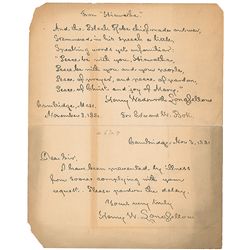 From "Hiawatha."
And the Black-Robe chief made answer,
Stammered in his speech a little,
Speaking words yet unfamiliar:
"Peace be with you, Hiawatha,
Peace be with you and your people,
Peace of prayer, and peace of pardon,
Peace of Christ, and joy of Mary!"
Henry Wadsworth Longfellow
Cambridge, Mass.
November 3, 1881. For Edward W. Bok.
Cambridge, Nov. 3, 1881
Dear Sir,
I have been prevented by illness
from sooner complying with your
request. Please pardon the delay.
Yours very truly
Henry W. Longfellow